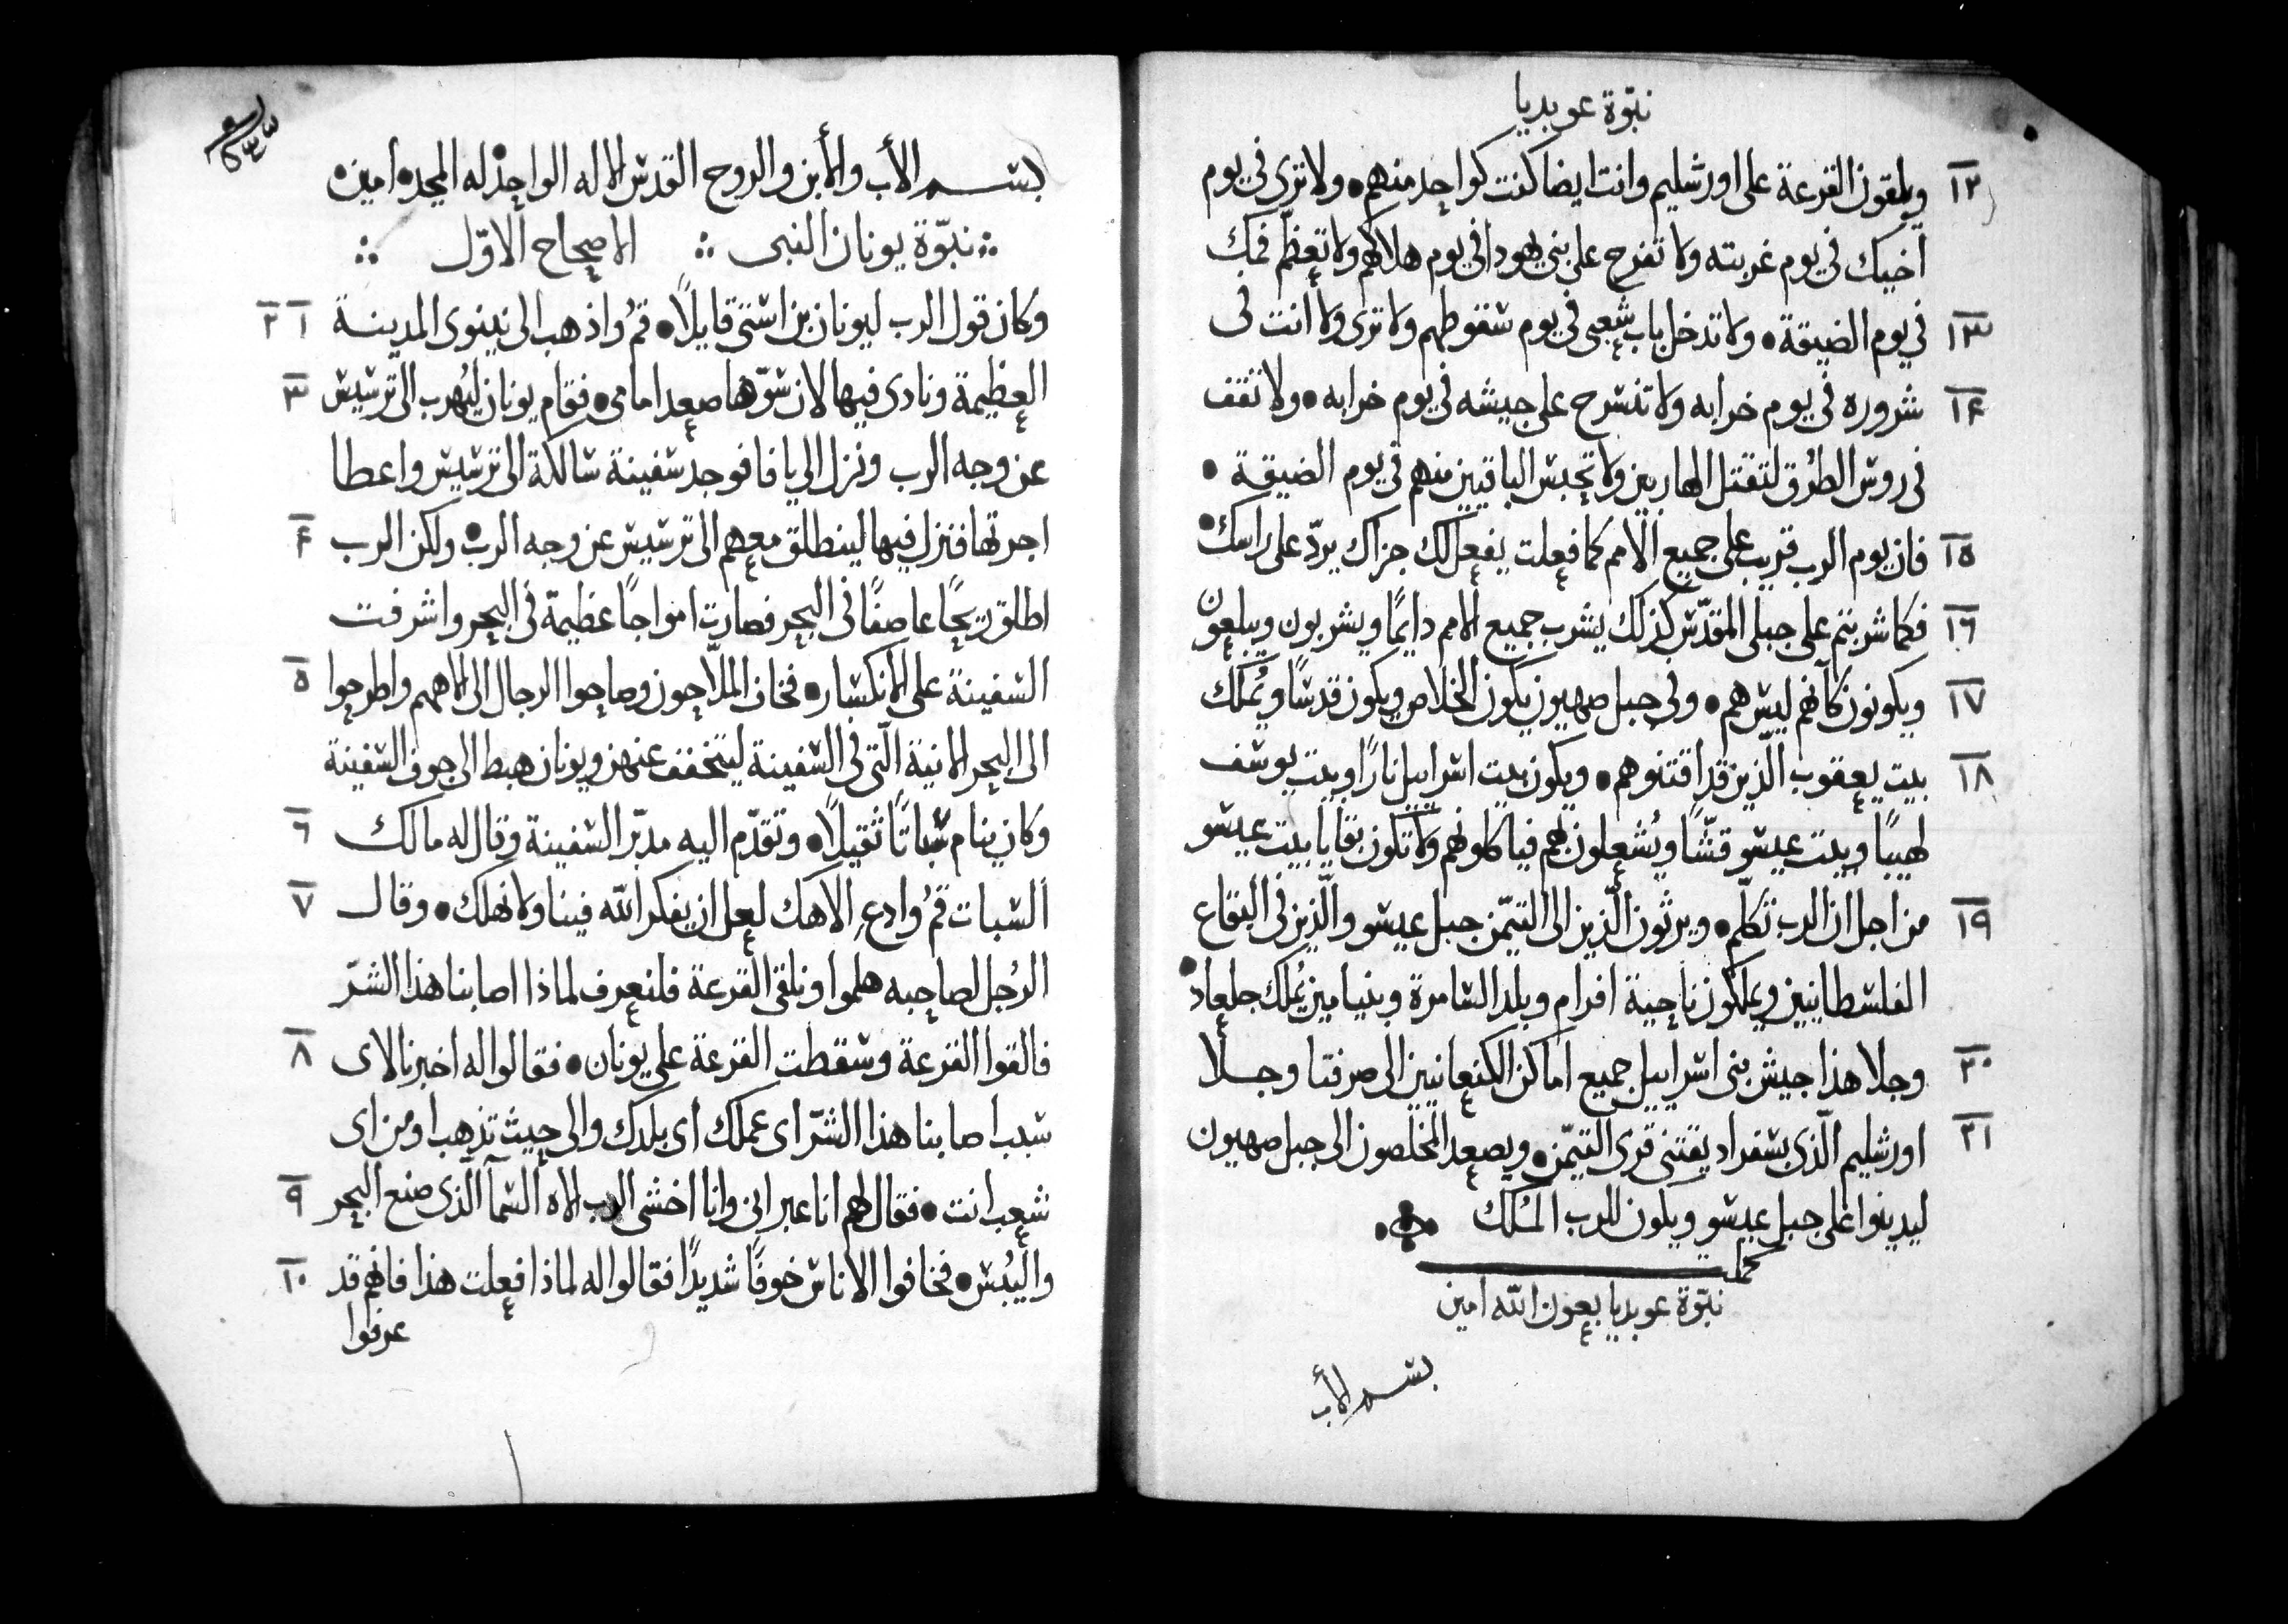 نبّوة عوبديا
١٢ ويلقون القرعة على اورشليم وانت ايضا كنت كواحد منهم • ولا ترى فى يوم
اخيك فى يوم غربته ولا تفرح على بنى يهودا فى يوم هلاكهم ولا تعظّم فمك
١٣ فى يوم الضيقة • ولا تدخل باب شعبى فى يوم سقوطهم ولا ترى ولا انت فى
١٤ شروره فى يوم خرابه ولا تنسرح على جيشه فى يوم خرابه • ولا تقف
فى روس الطُرق لتقتل الهاربين ولا تحبس الباقيين منهم فى يوم الضيقة •
١٥ فان يوم الرب قريب على جميع الامم كما فعلت يفعل لك جزاك يردّ على راسك •
١٦ فكما شربتم على جبلى المقدّس كذلك يشرب جميع الامم دايمًا ويشربون ويبلعون
١٧ ويكونون كانهم ليس هم • وفى جبل صهيون يكون الخلاص ويكون قدسًا ويُملك
١٨ بيت يعقوب الّذين قد اقتنوهم • ويكون بيت اسراييل نارًا وبيت يوسف
لهيبًا وبيت عيسو قشًّا ويُشعلون بهم فياكلونهم ولا تكون بقايا بيت عيسو
١٩ من اجل ان الرب تكلّم • ويرثون الّذين الى التيّمن جبل عيسو والّذين فى البقاع
الفلسطانيين ويملكون ناحية افرام وبلد السامرة وبنيامين يُملك جلعاد •
٢٠ وجلا هذا جيش بنى اسراييل جميع اماكن الكنعانيين الى صرفتا وجلا
٢١ اورشليم الّذى بسفراد يقتنى قرى التيّمن • ويصعد المخلصون الى جبل صهيون
ليدينوا على جبل عيسو ويكون للرب المُلك
كمل
نبّوة عوبديا بعون الله امين
بسم الأب
بسم الأب والأبن والروح القدس الاله الواحد له المجد امين
نبّوة يونان النبى الاصحاح الاوّل
١ ٢ وكان قول الرب ليونان بن استى قايلاً • قمُ واذهب الى نينوى المدينة
٣ العظيمة ونادى فيها لان سّوها صعد امامى • فقام يونان ليُهرب الى ترسيس
عن وجه الرب ونزل الى يافا فوجد سفينة سالكة الى ترسيس واعطا
٤ اجرتها فنزل فيها لينطلق معهم الى ترسيس عن وجه الرب • ولكن الرب
اطلق ريحًا عاصفًا فى البحر فصارت امواجًا عظيمة فى البحر واشرفت
٥ السفينة على الانكسار • فخاف الملّاحون وصاحوا الرجال الى الاههم واطرحوا
الى البحر الانية الّتى فى السفينة ليتخفف عنهن ويونان هبط الى جوف السفينة
٦ وكان ينام سُباتًا ثقيلاً • وتقدّم اليه مدبّر السفينة وقال له ما لك
٧ السُبات قمُ وادعِ الاهك لعل ان يفكر الله فينا ولا نهلك • وقال
الرُجل لصاحبه هلموا ونلقى القرعة فلنعرف لماذا اصابنا هذا الشرّ
٨ فالقوا القرعة وسقطت القرعة على يونان • فقالوا له اخبرنا لاى
سبب اصابنا هذا الشرّ اى عملك اى بلدك والى حيث تذهب او من اى
٩ شعب انت • فقال لهم انا عبرانى وانا اخشى الرب الاه السّمآ الّذى صنع البحر
١٠ واليُبس • فخافوا الاناس خوفًا شديدًا فقالوا له لماذا فعلت هذا فانهم قد
عرفوا